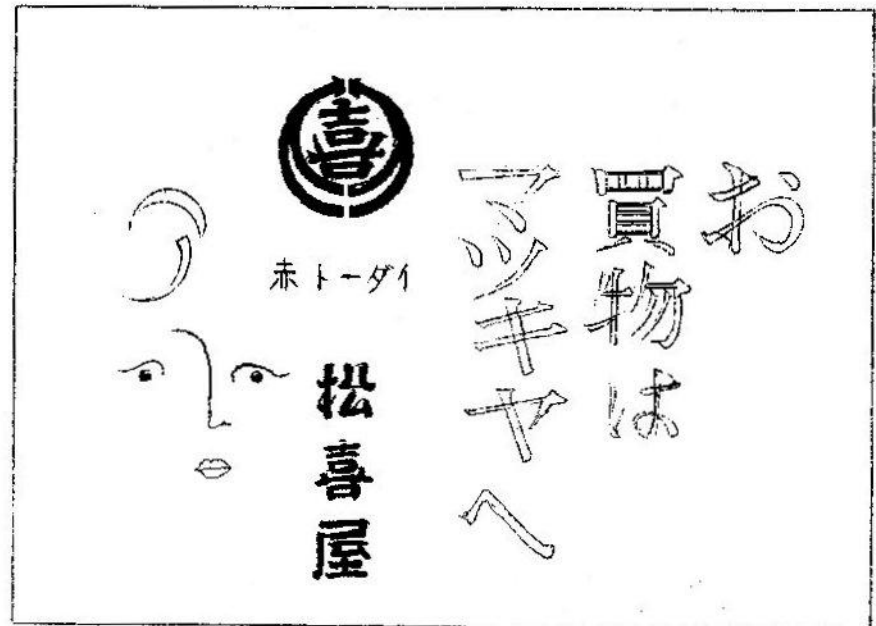 お
買物は
マツキヤへ
喜
赤トーダイ
松喜屋